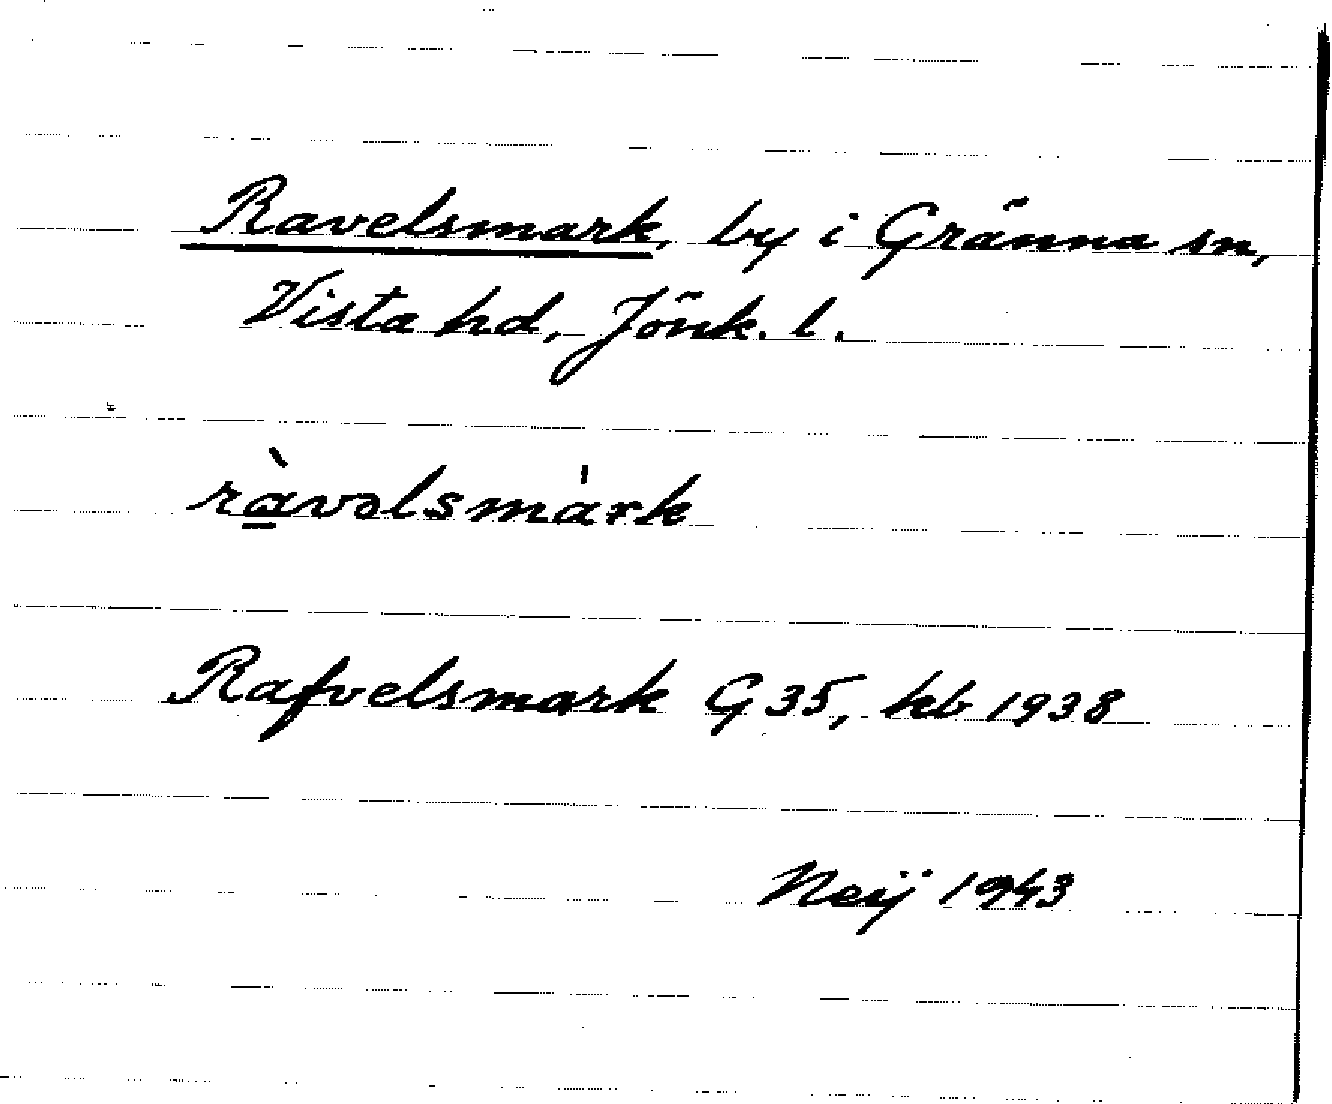 Ravelsmark, by i Gränna sn,
Vista hd, Jönk. l.
rà̱vəlsma̍rk
Rafvelsmark G 35, kb 1938
Neij 1943